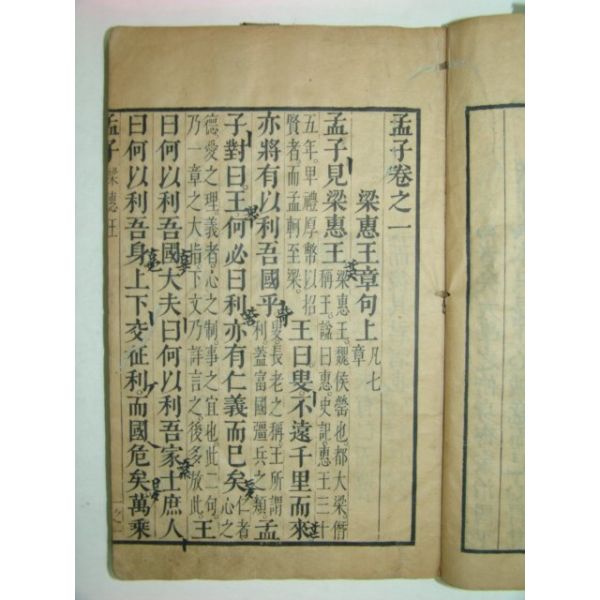 孟子卷之一
梁惠王章句上 凡七章
孟子見梁惠王 梁惠王。魏侯罃也。都大梁。僭稱王。謚曰惠。史記。惠王三十
五年。卑禮厚幣以招賢者。而孟軻至梁。 王曰叟。不遠千里而來
亦將有以利吾國乎 叟。長老之稱。王所謂利。蓋富國彊兵之類。 孟
子對曰。王何必曰利。亦有仁義而已矣 仁者。心之
德。愛之理。義者。心之制。事之宜也。此二句。乃一章之大指。下文乃詳言之。後多放此。 王
曰何以利吾國。大夫曰何以利吾家。士庶人
曰何以利吾身。上下交征利。而國危矣。萬乘
孟子 梁惠王